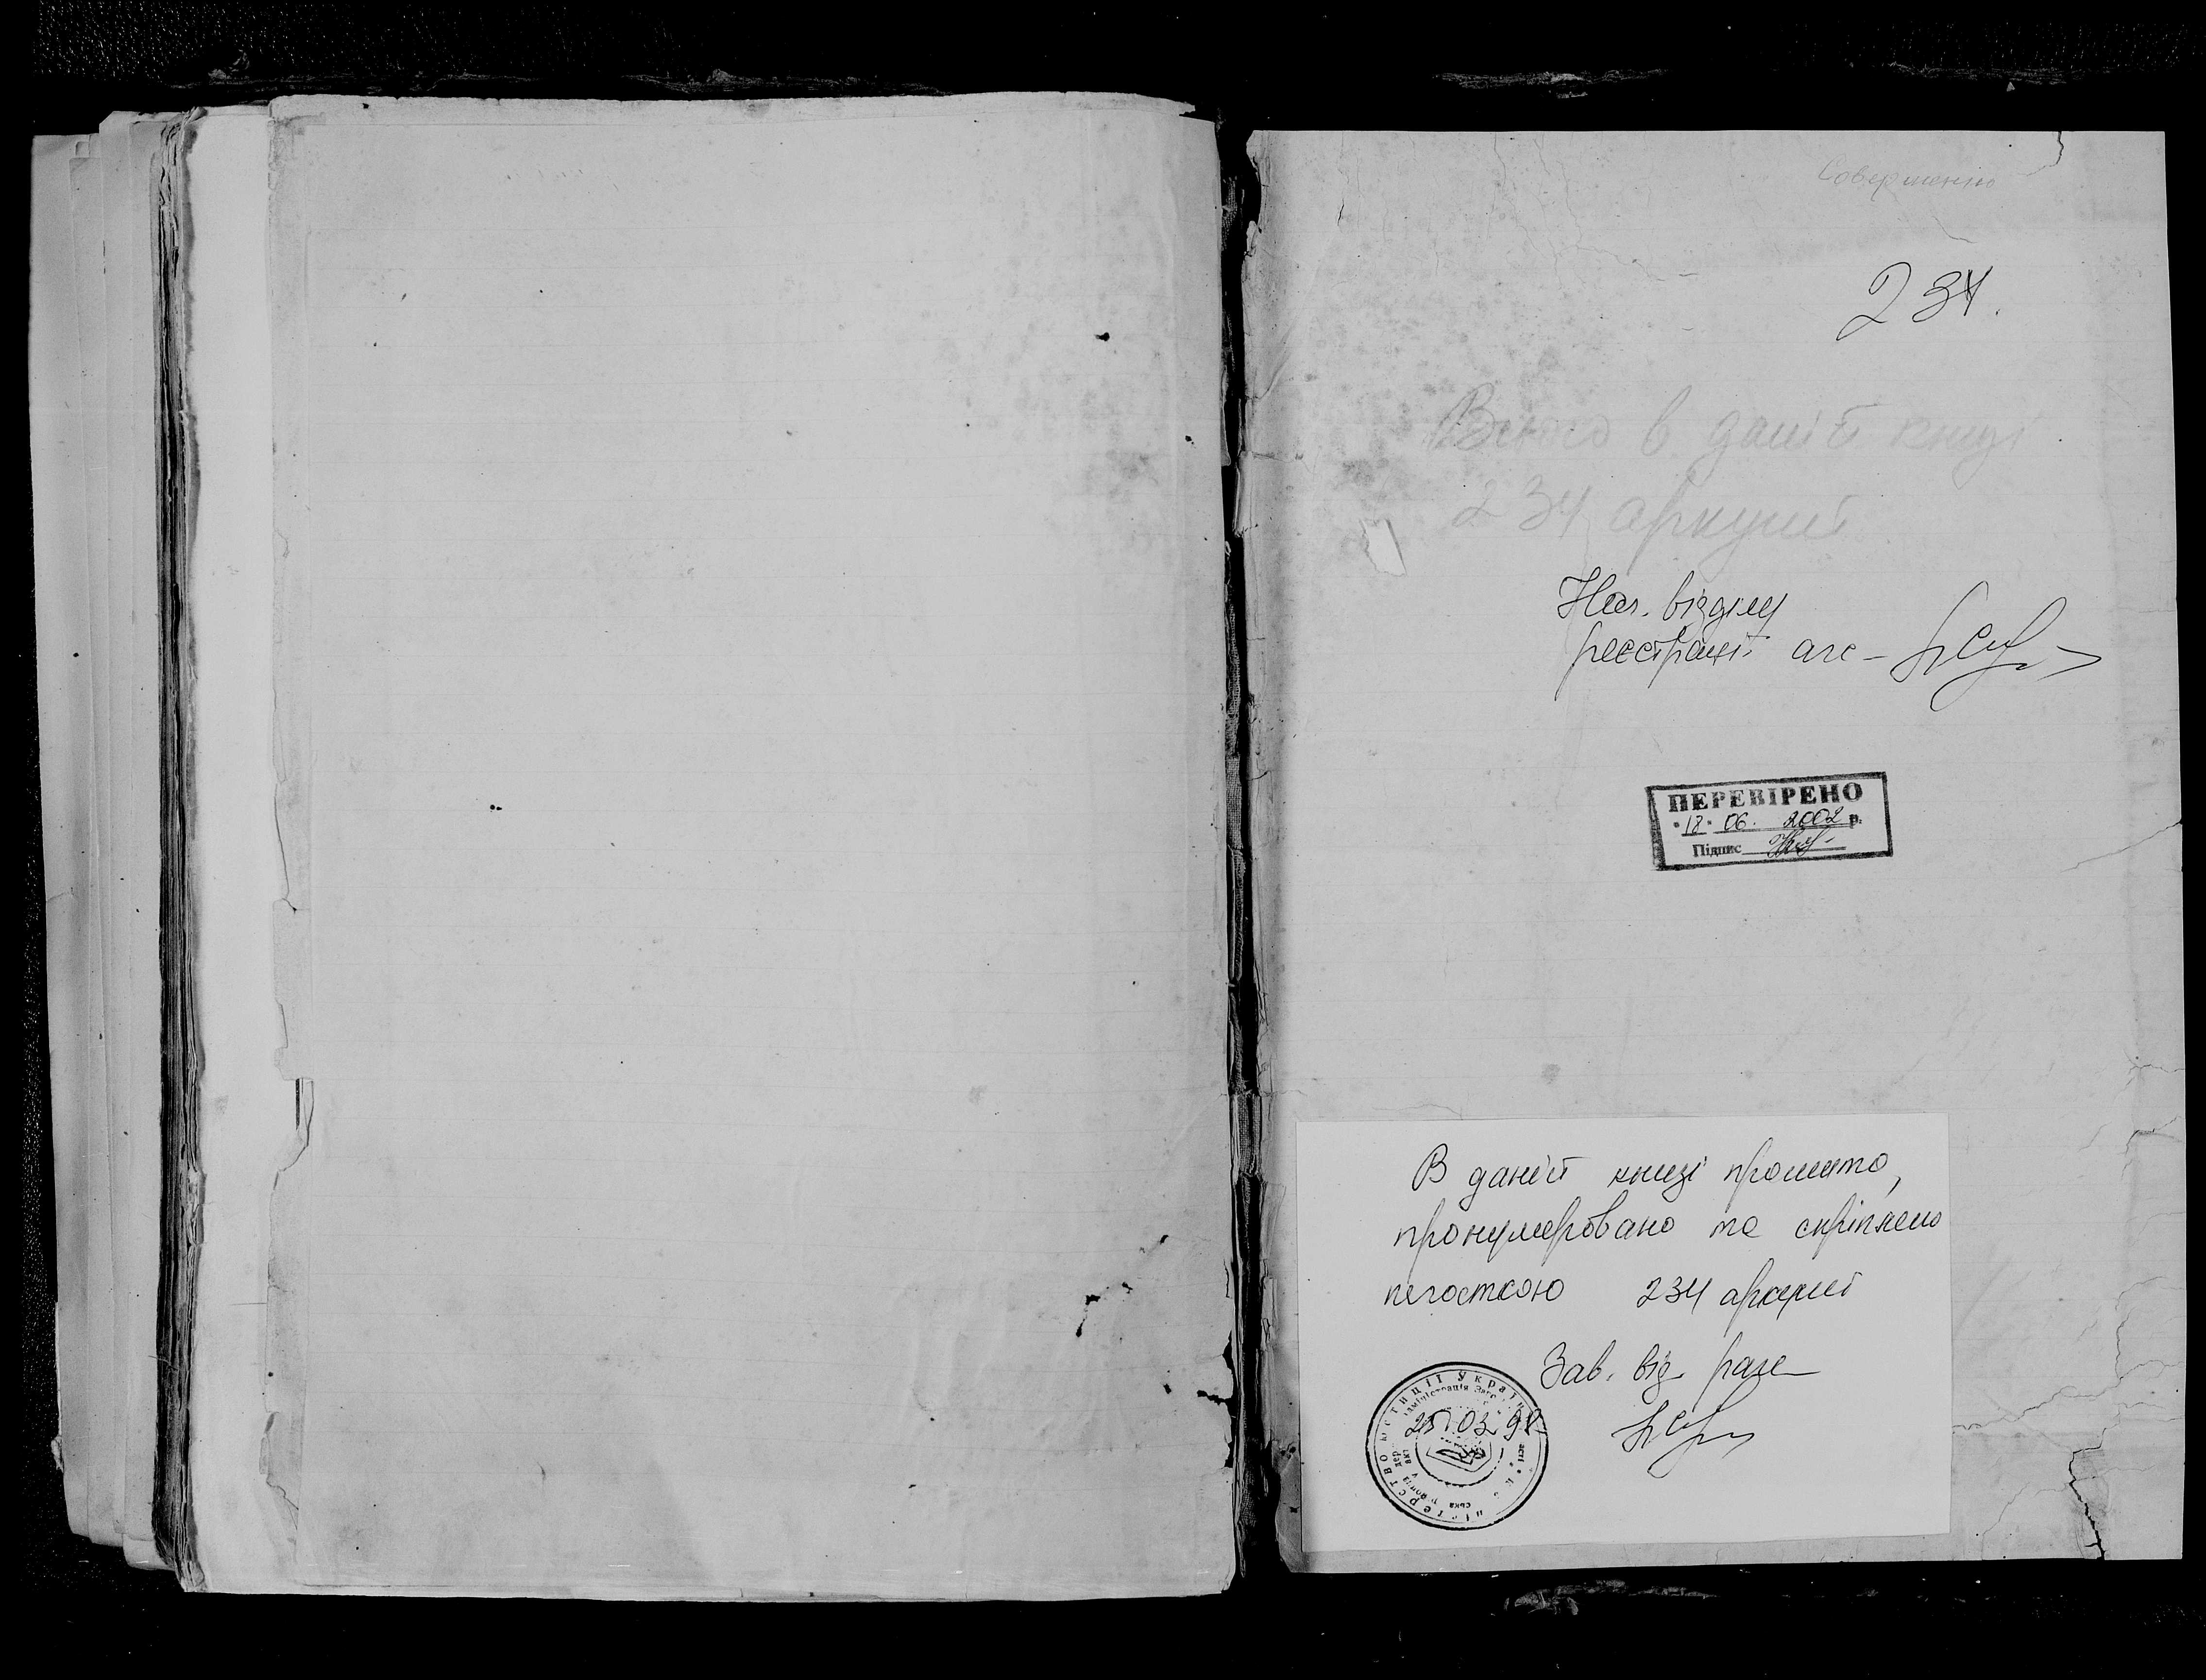 Совершенно
234.
Всього в даній книзі
234 аркуші
Нач. відділу
реєстрації агс -
ПЕРЕВІРЕНО
"18" 06. 2002 р.
Підпис
В даній книзі прошито,
пронумеровано та скріплено
печаткою 234 аркуші
Зав. від. рагс
25.03.98